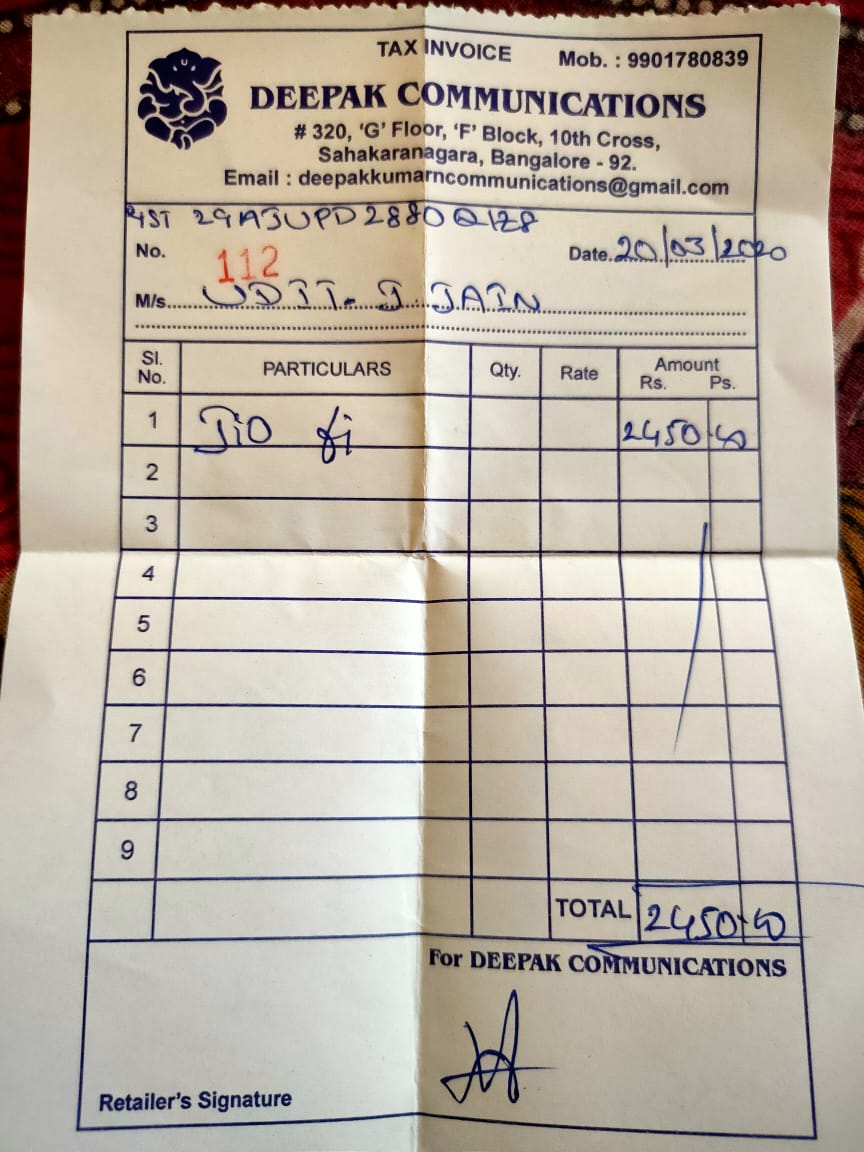 TAX INVOICE Mob. : 9901780839
DEEPAK COMMUNICATIONS
# 320, 'G' Floor, 'F' Block, 10th Cross,
Sahakaranagara, Bangalore - 92.
Email : deepakkumarncommunications@gmail.com
GST 29AJUPD2880Q1Z8
No. 112 Date. 20/03/2020
M/s. UDIT. J. JAIN
Sl. No. PARTICULARS Qty. Rate Amount Rs. Ps.
1 Jio fi 2450.00
2
3
4
5
6
7
8
9
TOTAL 2450.00
For DEEPAK COMMUNICATIONS
Retailer's Signature